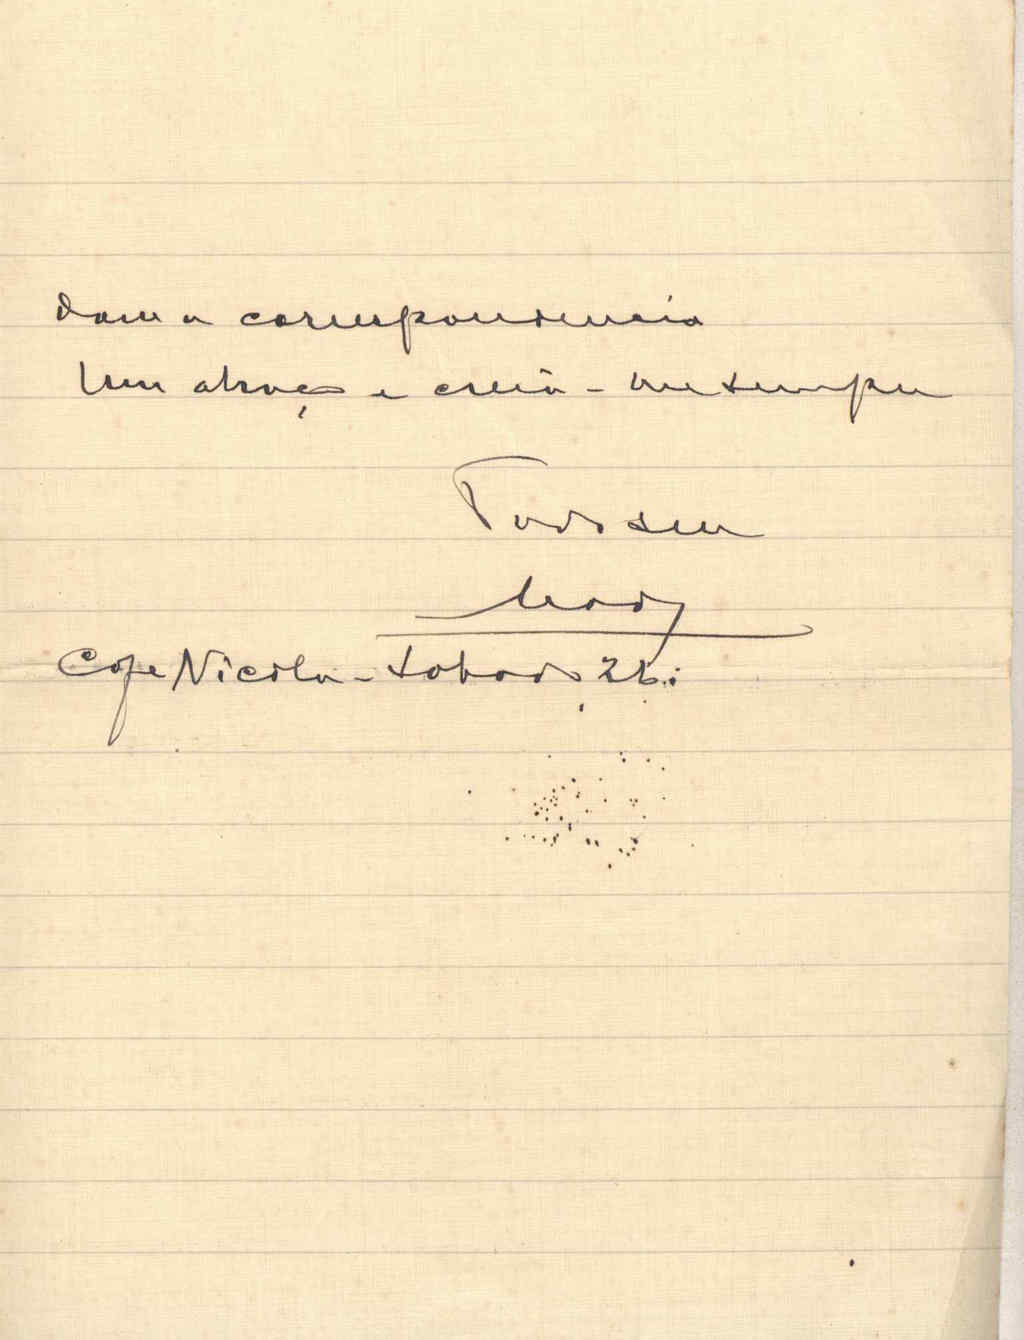 dam a correspondencia
Um abraço e creia-me sempre
Todo seu
Café Nicola - Sabado, 26.